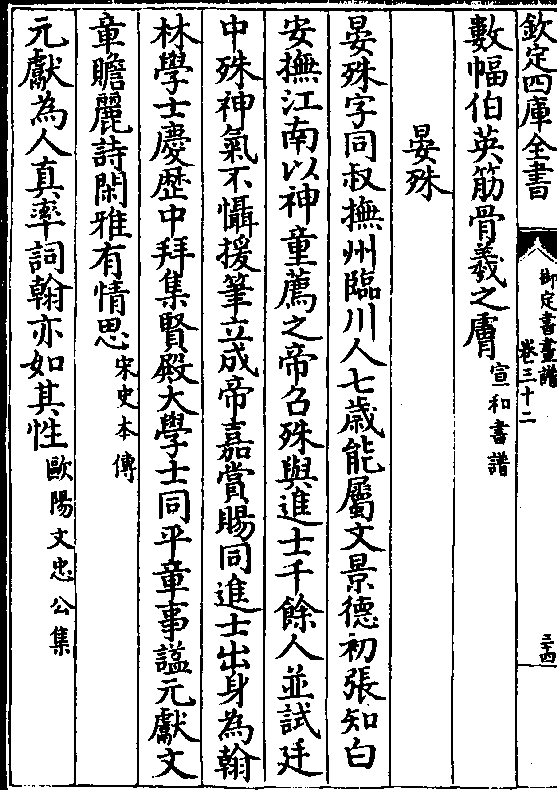 欽定四庫全書
御定書畫譜
卷三十二
三十四
數幅伯英筋骨羲之膚宣和書譜
晏殊
晏殊字同叔撫州臨川人七歲能屬文景德初張知白
安撫江南以神童薦之帝召殊與進士千餘人並試廷
中殊神氣不懾援筆立成帝嘉賞賜同進士出身為翰
林學士慶歴中拜集賢殿大學士同平章事謚元獻文
章贍麗詩閑雅有情思宋史本傳
元獻為人真率詞翰亦如其性歐陽文忠公集